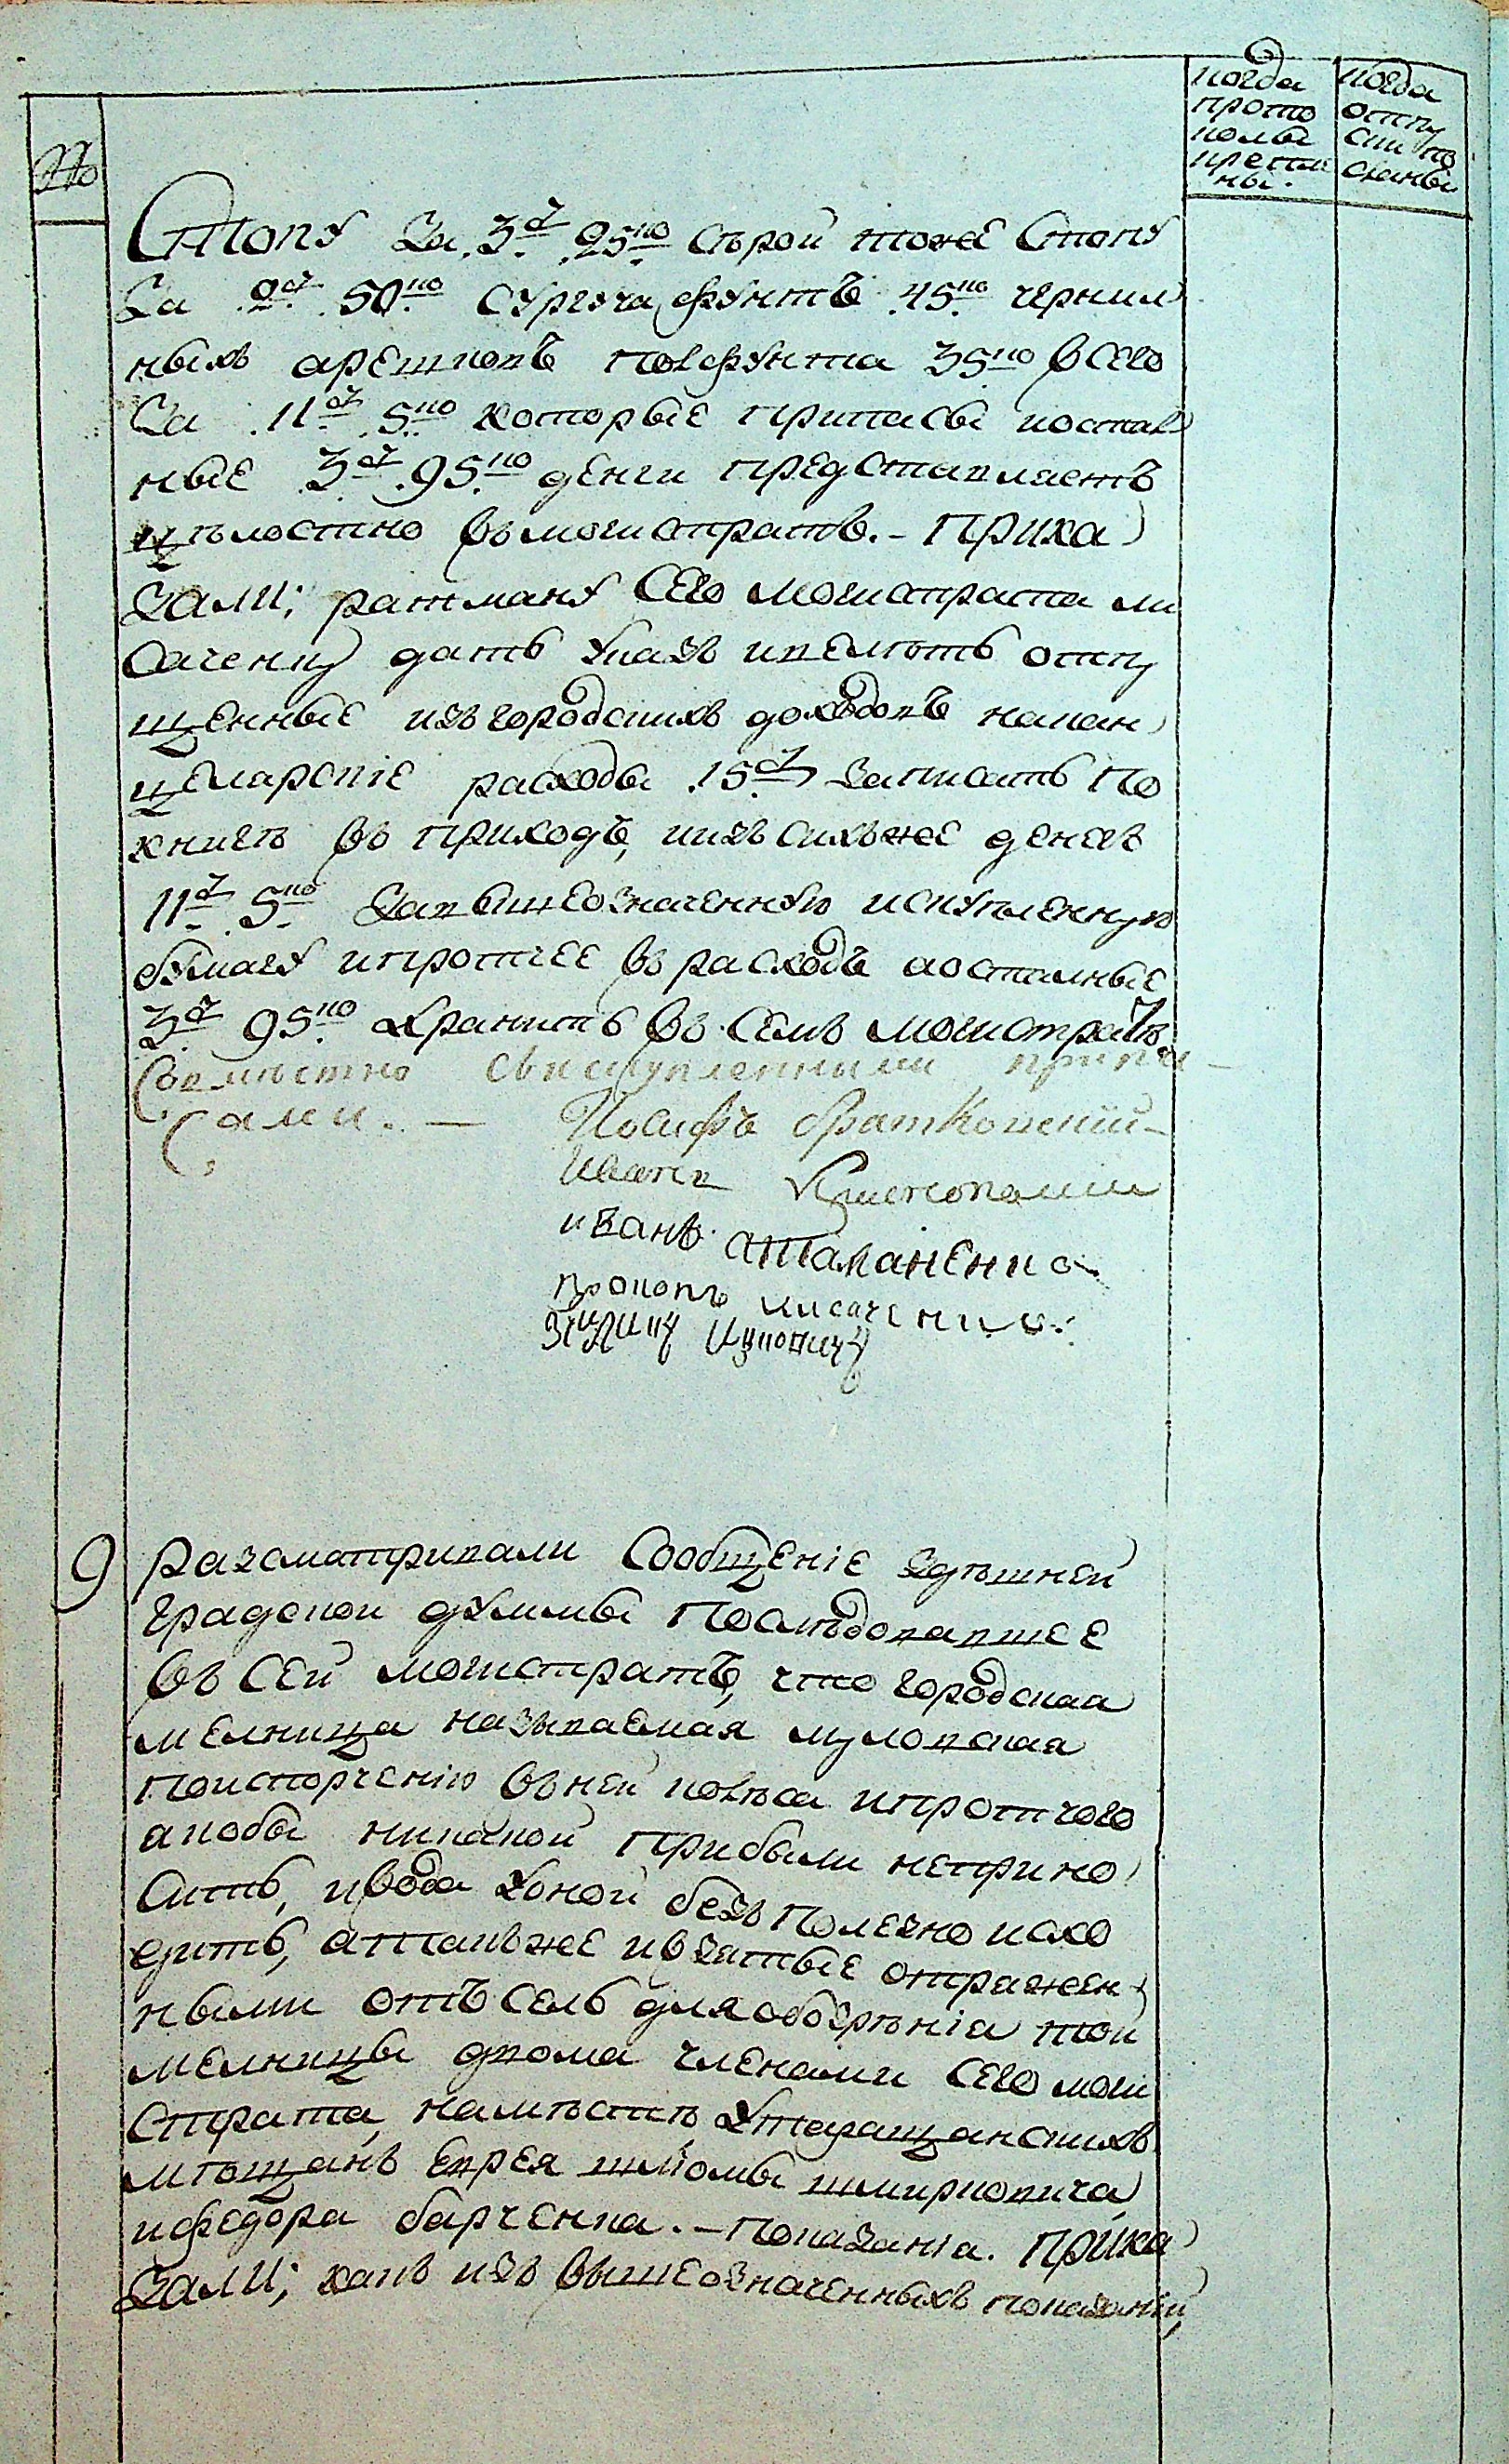 №
когда
прото
колы
крепле
ны.
когда
отпу
ски по
сланы
Стопу за 3р 25ко серой тоже стопу
за 2р 50ко сургуча фунтъ 45ко чернил
ныхъ орешковъ полфунта 35ко всего
за 11р 5ко которые припасы и остал
ные 3р 95ко денги представляетъ
целостно въ могистратъ. – Прика
зали; ратману сего могистрата Ли
саченку дать указъ и велеть отпу
щенные изъ городскихъ доходовъ на кан
целарские расходы 15р записать по
книге въ приходъ, и изъ сихъ же денегъ
11р 5ко за вышеозначенную искупленную
бумагу и протчее въ расходъ а осталные
3р 95ко хранить въ семъ могистрате
совместно съ искупленными припа
сами. —
Иосифъ Братковский
Иванъ
иванъ Аталаненко
Прокопъ Лисаченко
9 Разсматривали сообщение здешней
градской думмы последовавшее
въ сей могистратъ, что городская
мелница называемая муловская
по испорчению въ ней колеса и протчого
якобы никакой прибыли неприно
ситъ, и вода у оной безъ полезно исхо
дитъ, а также и взятые отряжен
ными отъ селъ для обозрения той
мелницы двома членами сего моги
страта, на месте у таращанскихъ
мещанъ еврея шлиомы шмирковича
и федора барченка. – Показания. Прика
зали; какъ изъ вышеозначенныхъ показаний,